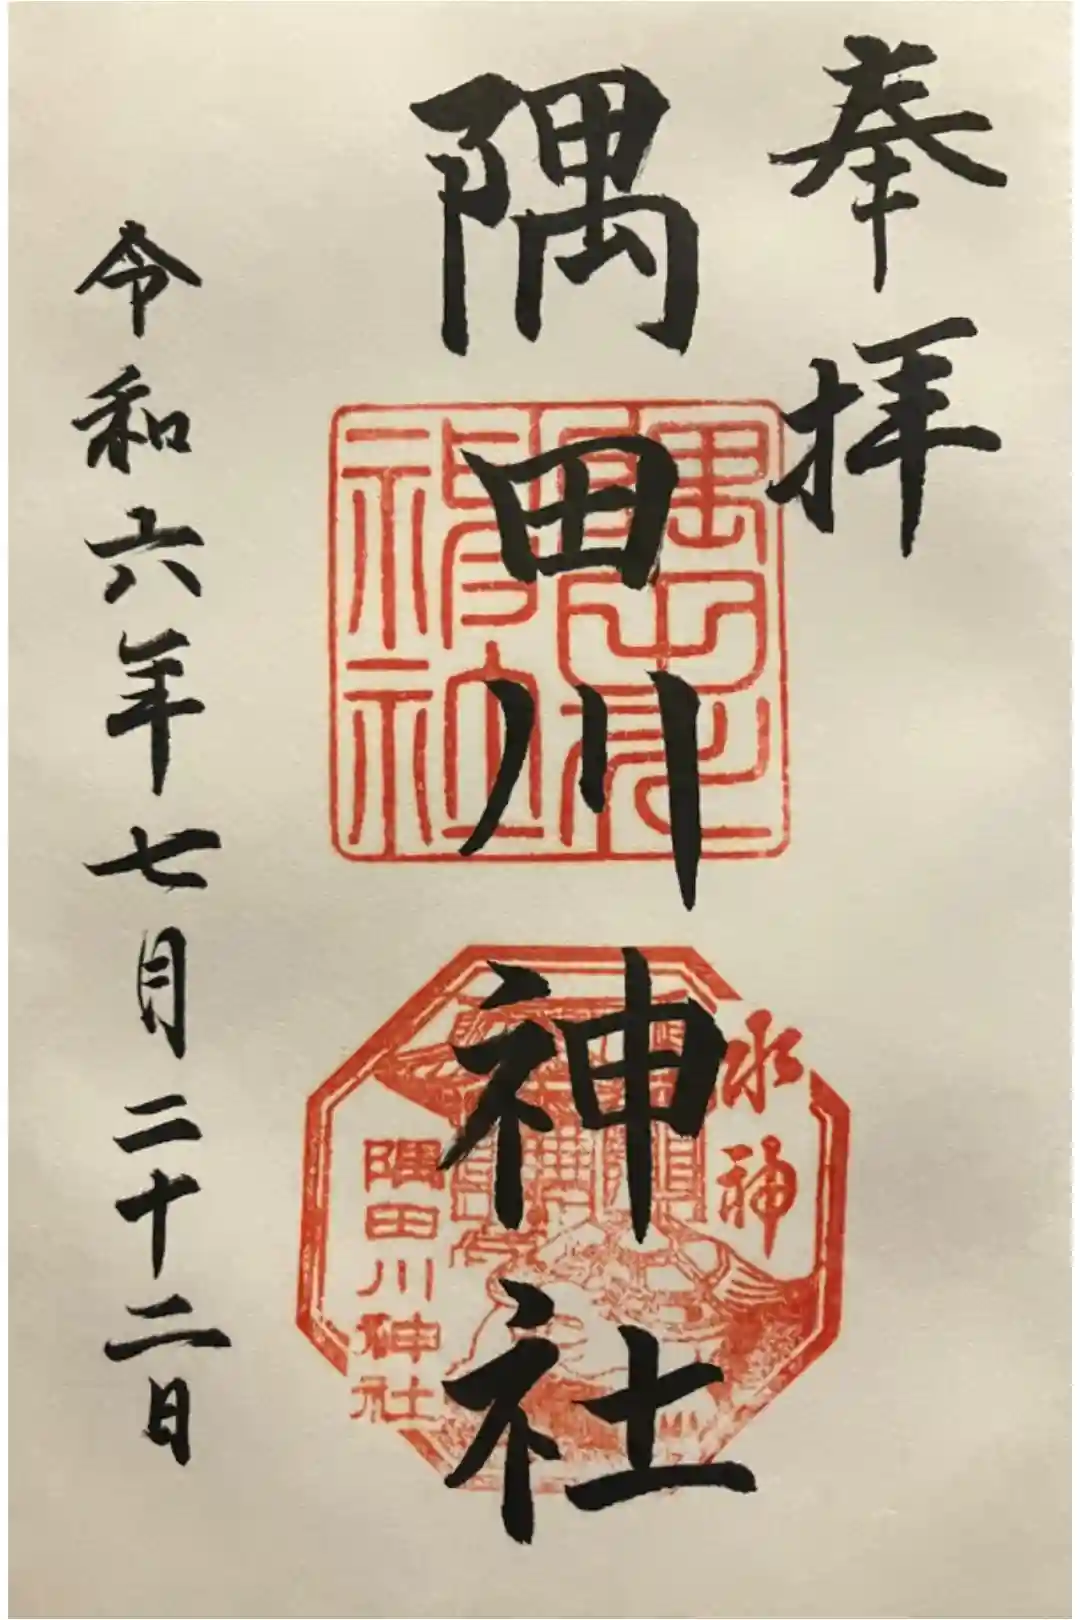 奉拝
隅田川神社
水神
隅田川神社
令和六年七月二十二日